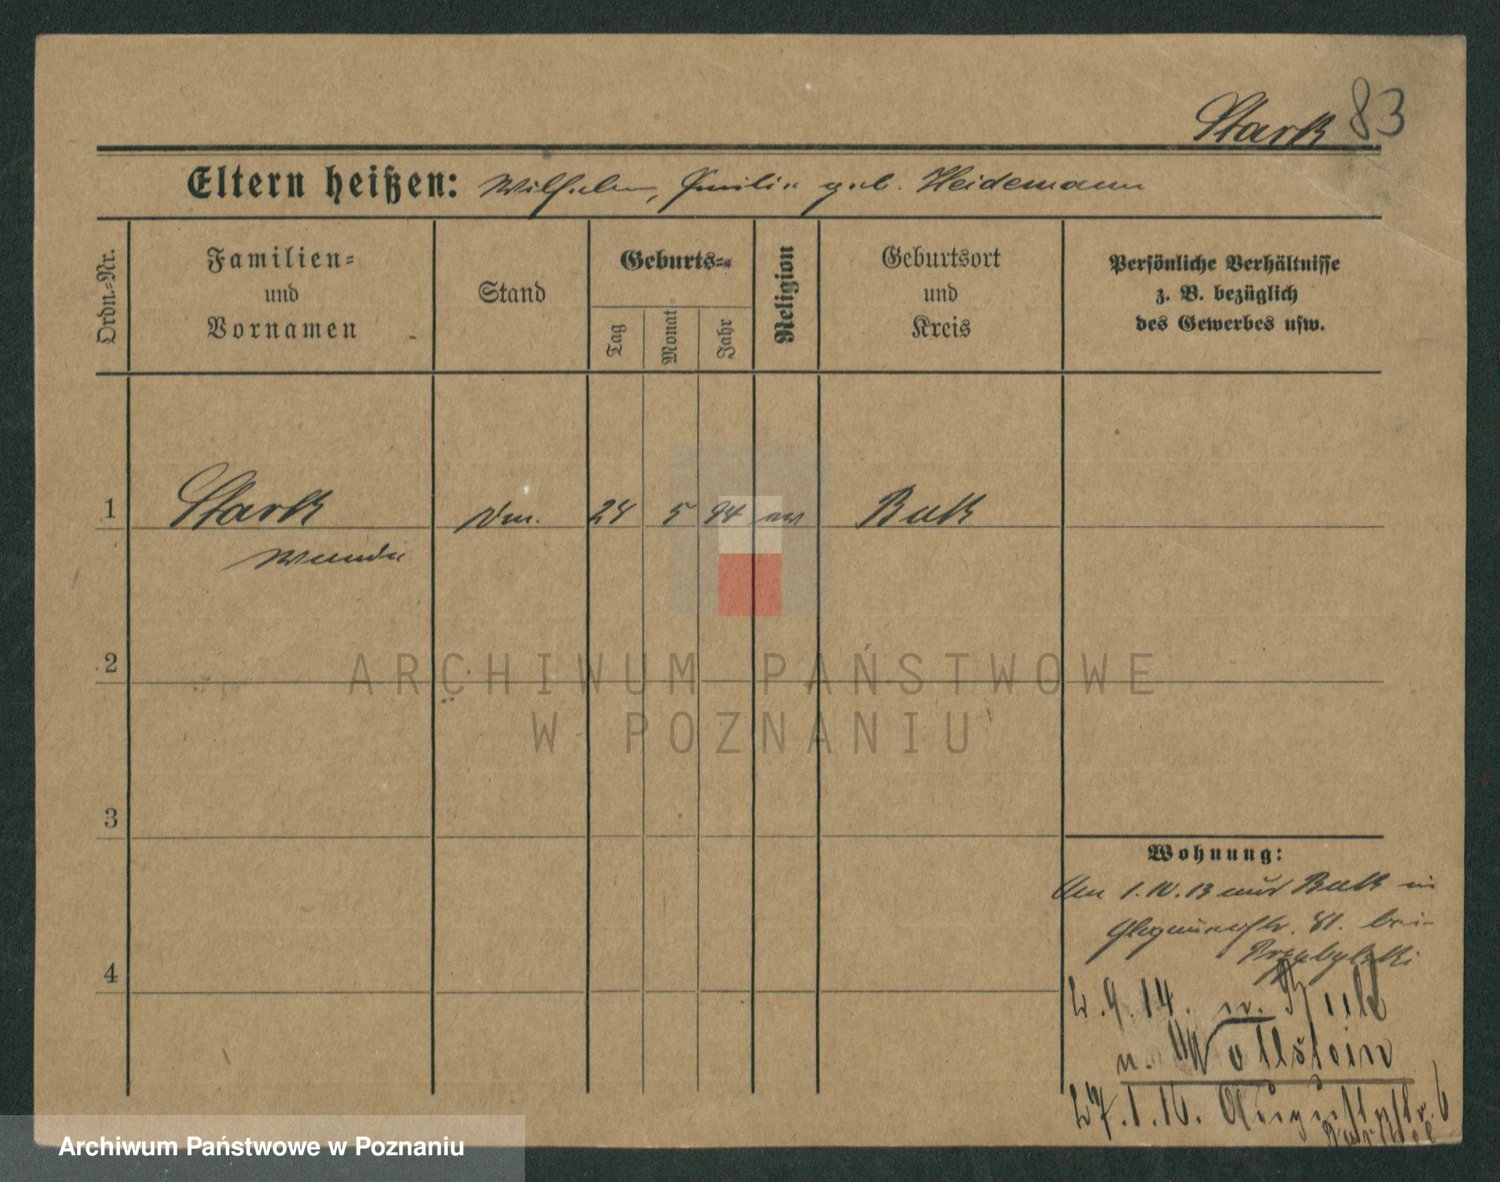 Stark 83
Eltern heißen: Wilhelm, Emilie geb. Heidemann
Ordn.-Nr.
Familien-
und
Vornamen
Stand
Geburts-
Tag
Monat
Jahr
Religion
Geburtsort
und
Kreis
Persönliche Verhältnisse
z. B. bezüglich
des Gewerbes usw.
1 Stark 24 5 94 ev Buk
2
3
4
Wohnung:
1.10.13 aus Buk in
81. bei
9.14. n. Buk
n. Wollstein
27.1.16. 6
ARCHIWUM PAŃSTWOWE
W POZNANIU
Archiwum Państwowe w Poznaniu